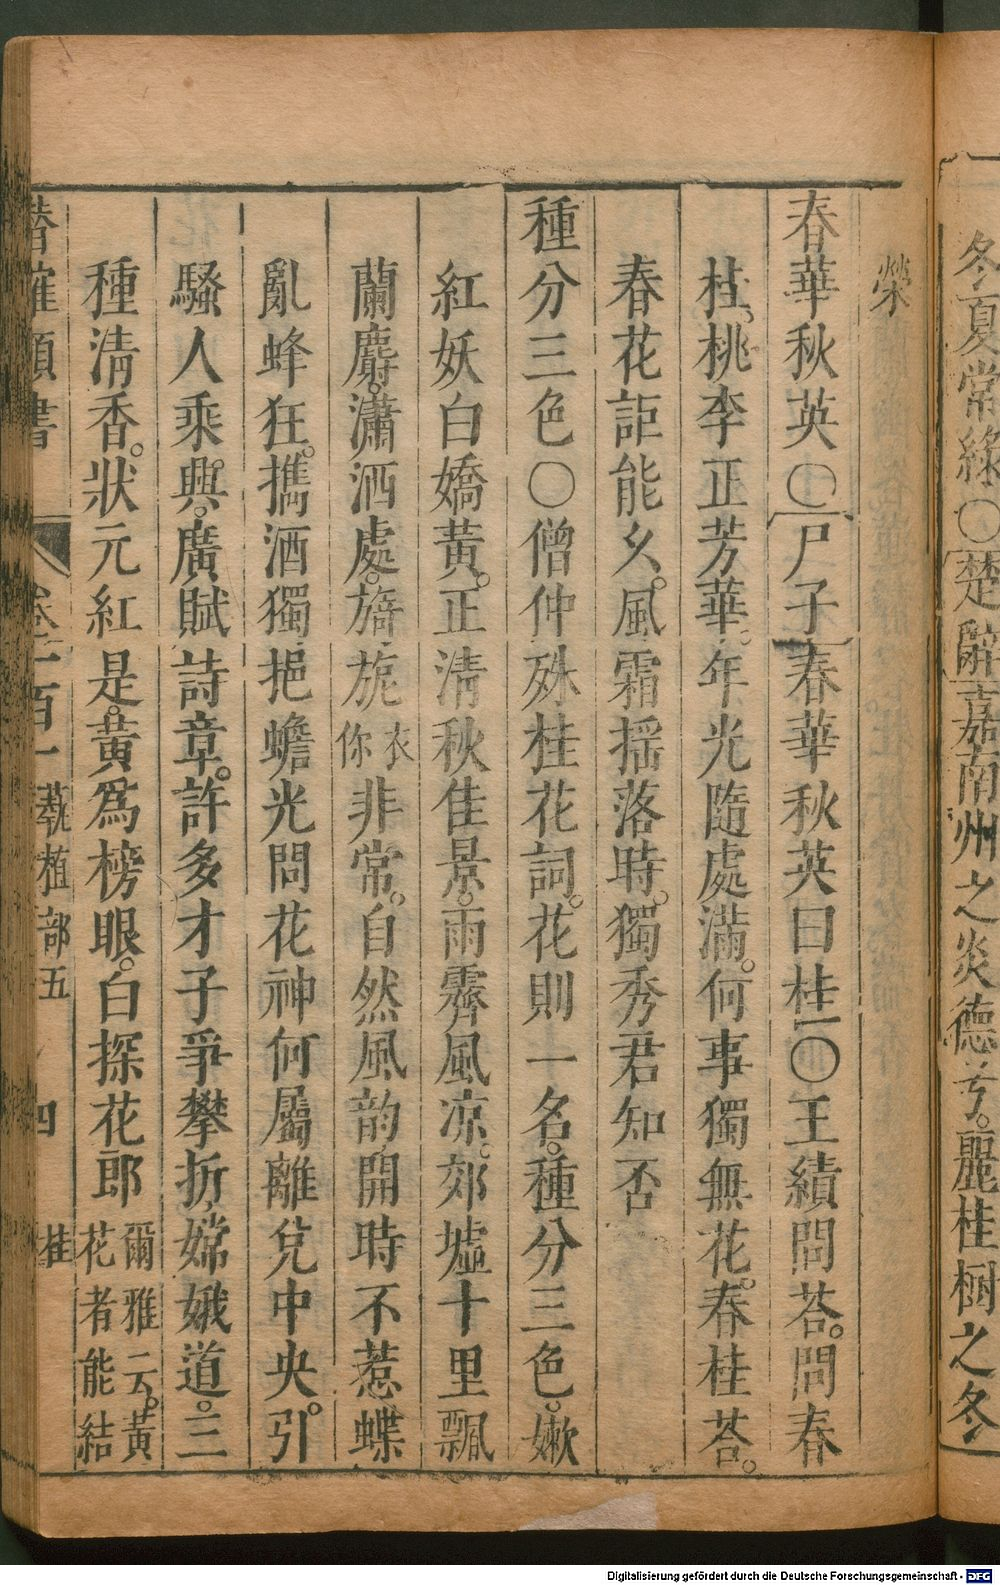 冬夏常綠〇楚辭嘉南州之炎德兮。麗桂樹之冬
榮
春華秋英〇尸子春華秋英曰桂〇王績問荅。問春
桂。桃李正芳華。年光隨處滿。何事獨無花。春桂荅。
春花詎能久。風霜揺落時。獨秀君知否
種分三色〇僧仲殊桂花詞。花則一名。種分三色。嫰
紅妖白嬌黃。正清秋佳景。雨霽風凉。郊墟十里飄
蘭麝。瀟洒處。旖旎
衣
你
非常。自然風韵。開時不惹蝶
亂蜂狂。擕酒獨挹蟾光問花神何屬離兌中央。引
騷人乘興。廣賦詩章。許多才子爭攀折。嫦娥道。三
種清香。狀元紅是。黃爲榜眼。白探花郎
爾雅云。黃
花者能結
卷二百一 蓺植部五 四 桂
Digitalisierung gefördert durch die Deutsche Forschungsgemeinschaft - DFG